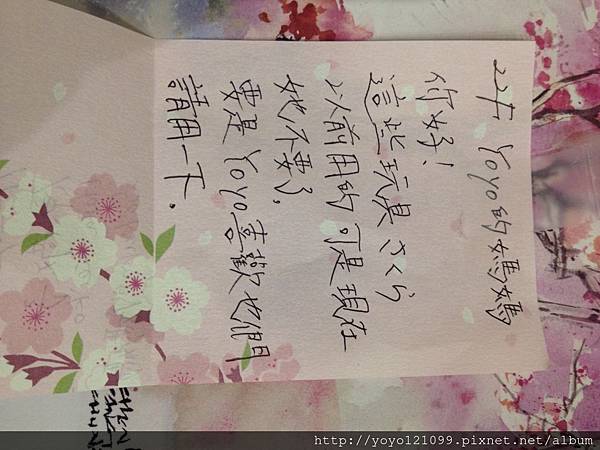 Yoyo的媽媽
你好!
這些玩具 さくら
以前用的可是現在
她不要了,
要是 Yoyo喜歡他們
請用一下.
http://yoyo121099.pixnet.net/album